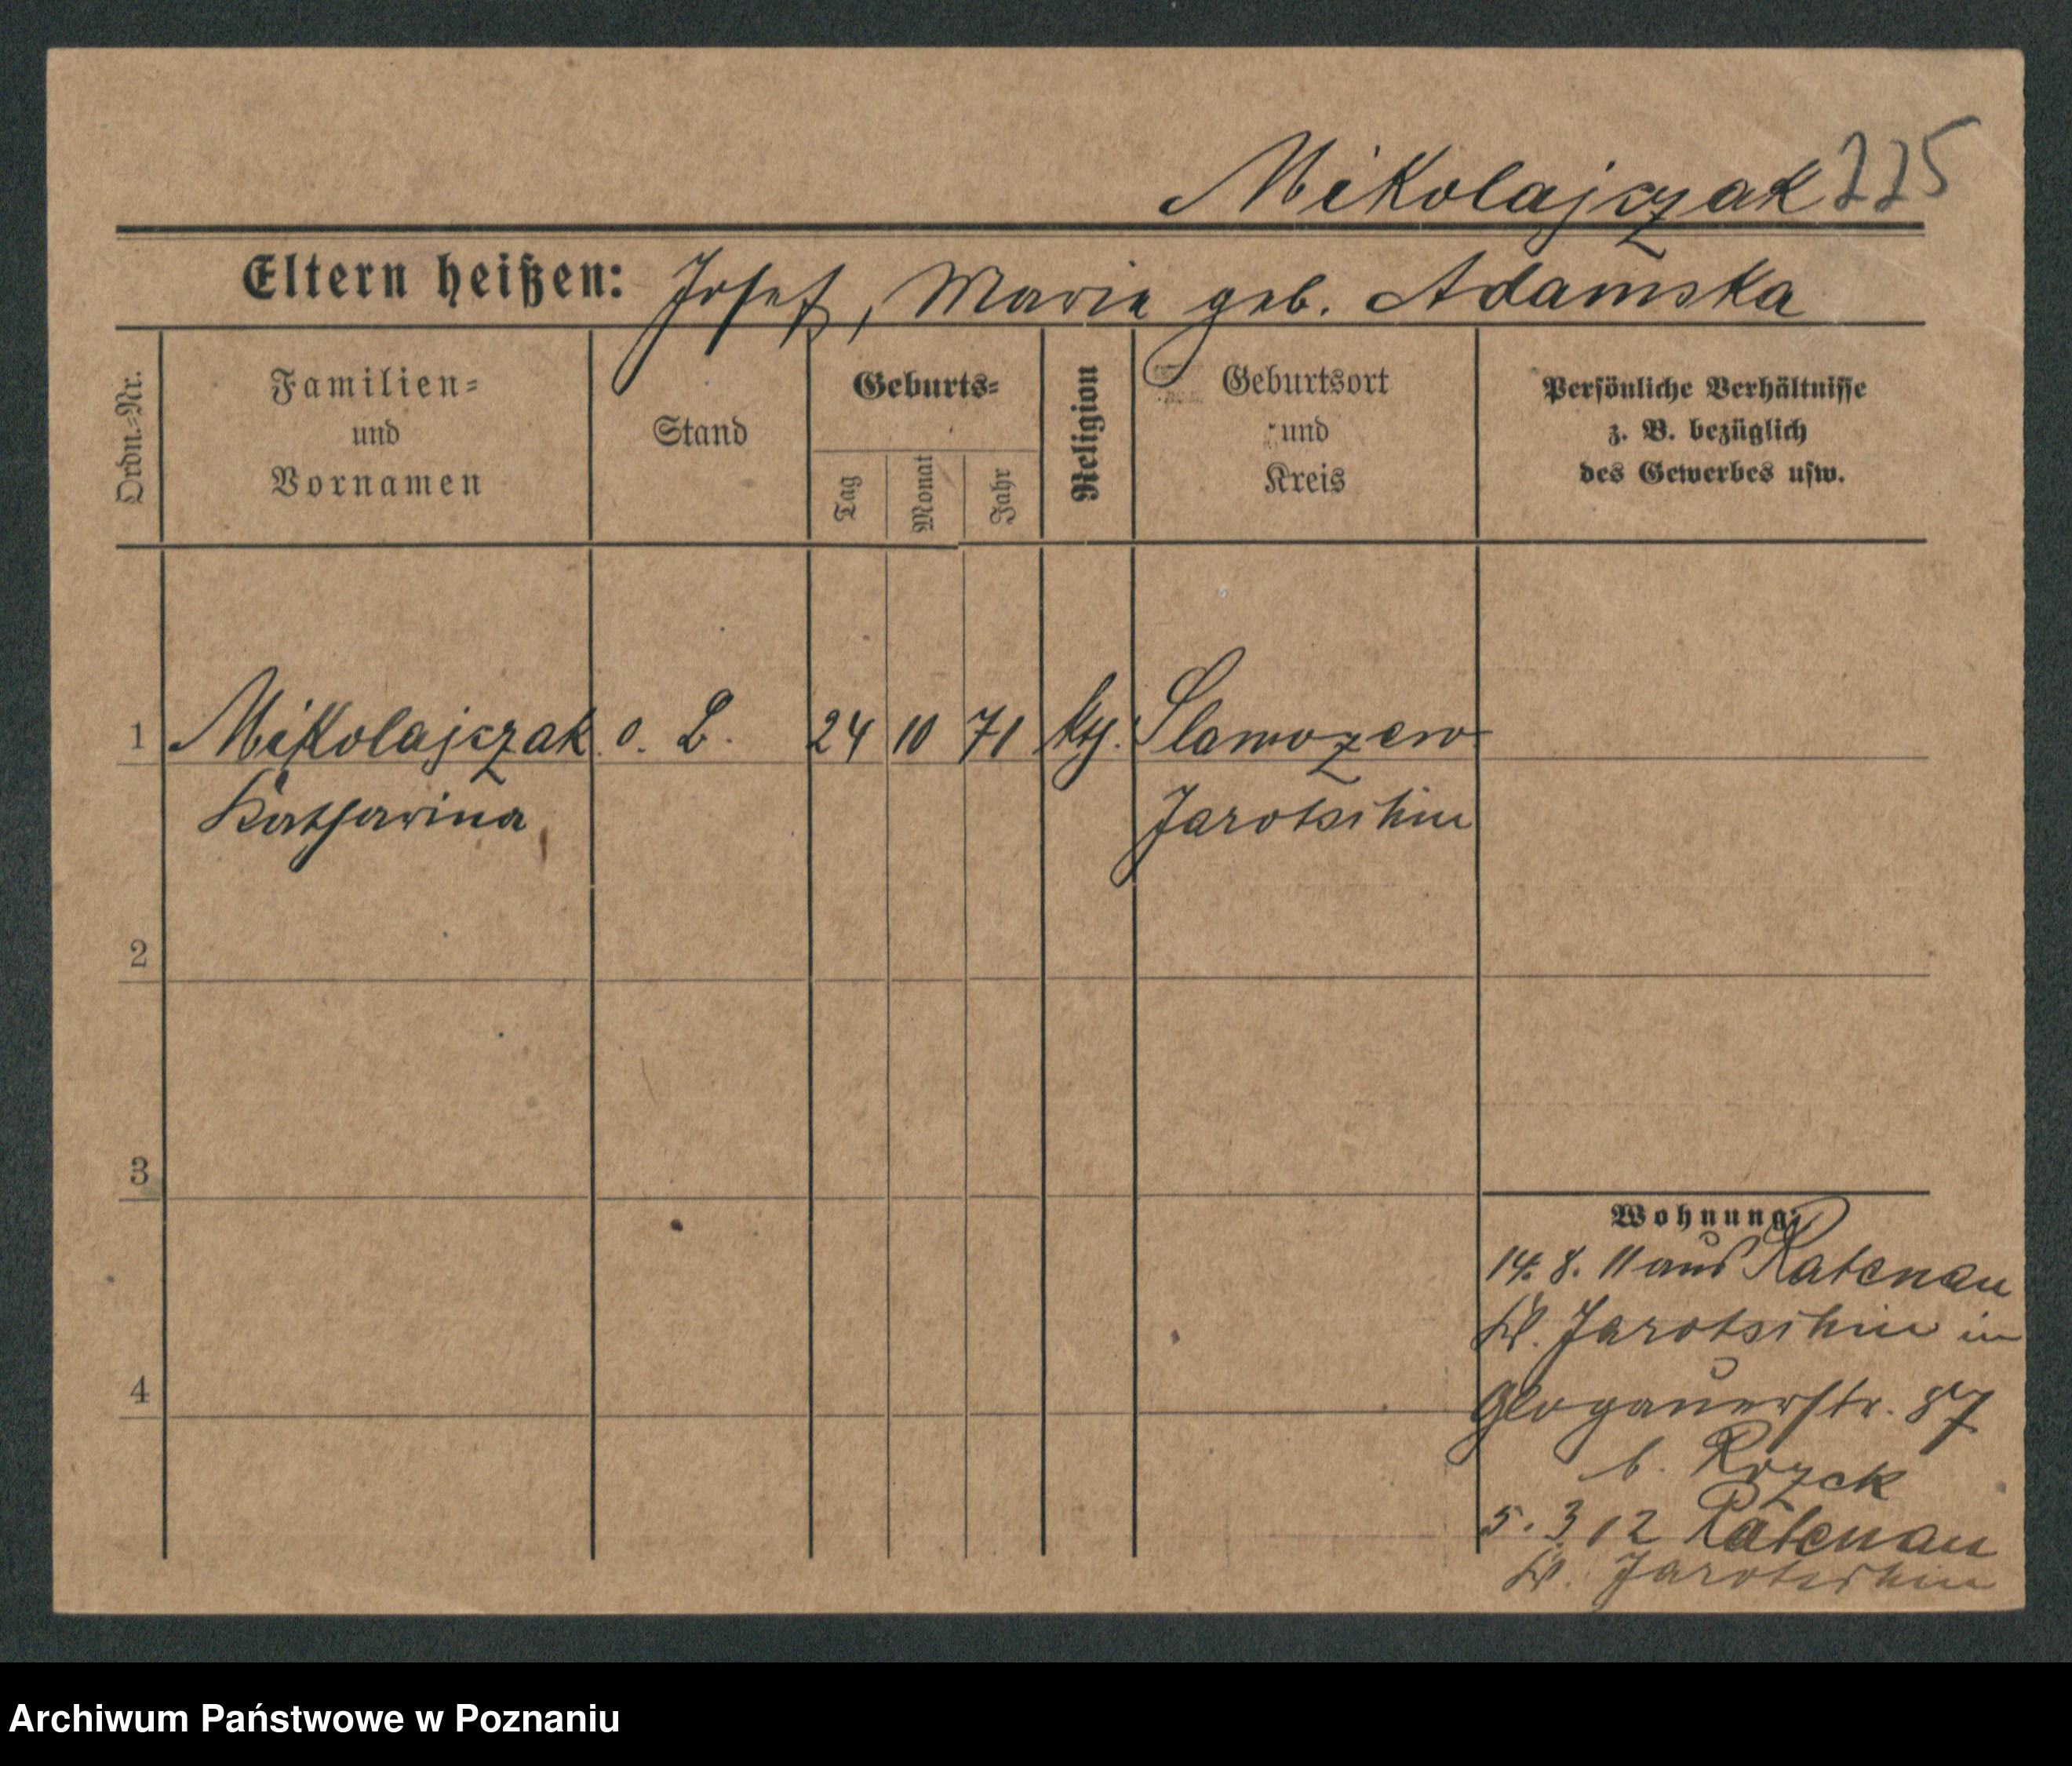 Mikolajczak 225
Eltern heißen: Josef, Maria geb. Adamska
Ordn.-Nr.
Familien-
und
Vornamen
Stand
Geburts-
Tag
Monat
Jahr
Religion
Geburtsort
und
Kreis
Persönliche Verhältnisse
z. B. bezüglich
des Gewerbes usw.
1 Mikolajczak o. B. 24 10 71 kth. Slawoszew
Katharina Jarotschin
2
3
4
Wohnung:
14. 8. 11 aus Ratenau
Kr. Jarotschin in
Glogauerstr. 87
b. Rozek
5. 3 12 Ratenau
Kr. Jarotschin
Archiwum Państwowe w Poznaniu